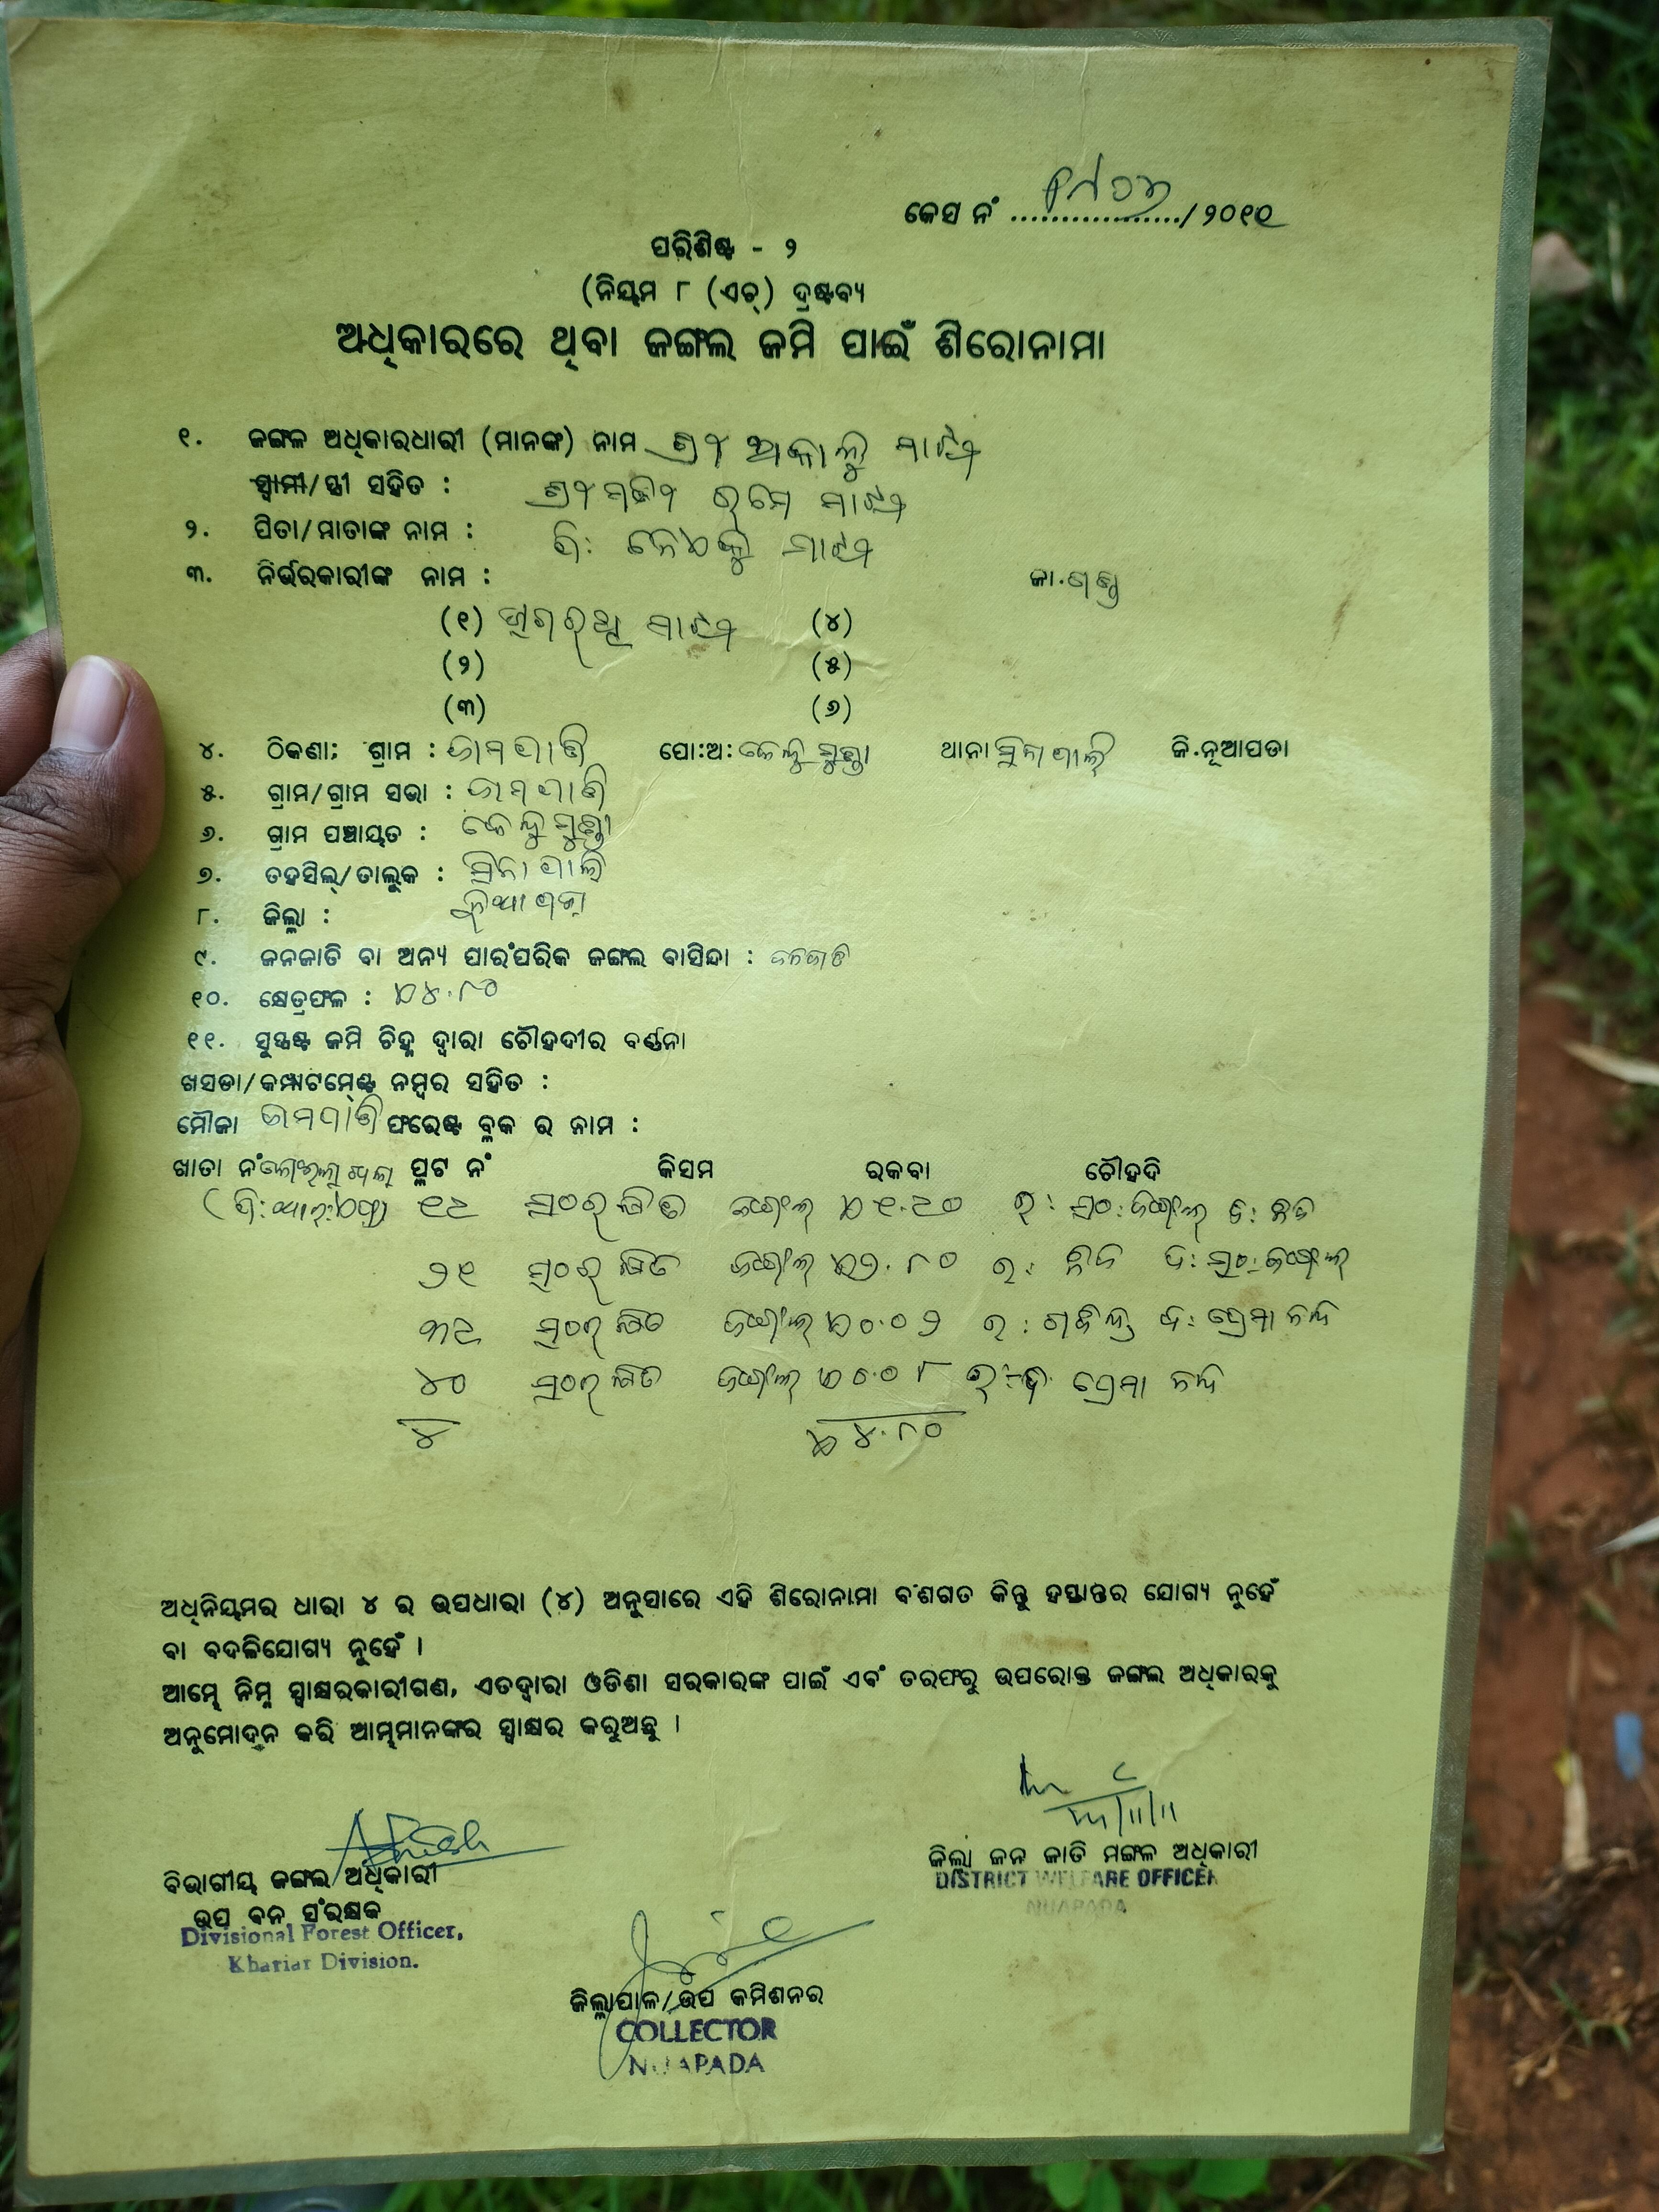 କେସ ନଂ ................../ ୨୦୧୧
ପରିଶିଷ୍ଟ - ୨
(ନିୟମ ୮ (ଏଚ୍) ଦ୍ରଷ୍ଟବ୍ୟ
ଅଧିକାରରେ ଥିବା ଜଙ୍ଗଲ ଜମି ପାଇଁ ଶିରୋନାମା
୧. ଜଙ୍ଗଳ ଅଧିକାରଧାରୀ (ମାନଙ୍କ) ନାମ ଶ୍ରୀ ଅକାଳୁ ମାଝୀ
ସ୍ୱାମୀ/ସ୍ତ୍ରୀ ସହିତ : ଶ୍ରୀମତୀ ମାଝୀ
୨. ପିତା/ମାତାଙ୍କ ନାମ : ମାଝୀ
୩. ନିର୍ଭରକାରୀଙ୍କ ନାମ : ଜା.
(୧) ମାଝୀ (୪)
(୨) (୫)
(୩) (୬)
୪. ଠିକଣା; ଗ୍ରାମ : ପୋ:ଅ: କେନ୍ଦୁମୁଣ୍ଡା ଥାନା ସିନାପାଲି ଜି.ନୂଆପଡା
୫. ଗ୍ରାମ/ଗ୍ରାମ ସଭା :
୬. ଗ୍ରାମ ପଞ୍ଚାୟତ : କେନ୍ଦୁମୁଣ୍ଡା
୭. ତହସିଲ୍/ତାଲୁକ : ସିନାପାଲି
୮. ଜିଲ୍ଲା : ନୂଆପଡା
୯. ଜନଜାତି ବା ଅନ୍ୟ ପାରଂପରିକ ଜଙ୍ଗଲ ବାସିନ୍ଦା : ଜନଜାତି
୧୦. କ୍ଷେତ୍ରଫଳ : ଏ୪.୮୦
୧୧. ସୁସ୍ପଷ୍ଟ ଜମି ଚିହ୍ନ ଦ୍ୱାରା ଚୌହଦୀର ବର୍ଣ୍ଣନା
ଖସଡା/କମ୍ପାଟମେଣ୍ଟ ନମ୍ବର ସହିତ :
ମୌଜା ଫରେଷ୍ଟ ବ୍ଲକ ର ନାମ :
ଖାତା ନଂ ପ୍ଲଟ ନଂ କିସମ ରକବା ଚୌହଦି
୧୯ ସଂରକ୍ଷିତ ଜଙ୍ଗଲ ଏ୧.୯୦ ଉ: ସଂ:ଜଙ୍ଗଲ ଦ: ନିଜ
୨୧ ସଂରକ୍ଷିତ ଜଙ୍ଗଲ ଏ୨.୮୦ ଉ: ନିଜ ଦ: ସଂ:ଜଙ୍ଗଲ
୩୯ ସଂରକ୍ଷିତ ଜଙ୍ଗଲ ଏ୦.୦୨ ଉ: ଦ: ପ୍ରେମାନନ୍ଦ
୪୦ ସଂରକ୍ଷିତ ଜଙ୍ଗଲ ଏ୦.୦୮ ପ୍ରେମାନନ୍ଦ
୪ ଏ୪.୮୦
ଅଧିନିୟମର ଧାରା ୪ ର ଉପଧାରା (୪) ଅନୁସାରେ ଏହି ଶିରୋନାମା ବଂଶଗତ କିନ୍ତୁ ହସ୍ତାନ୍ତର ଯୋଗ୍ୟ ନୁହେଁ
ବା ବଦଳିଯୋଗ୍ୟ ନୁହେଁ ।
ଆମ୍ଭେ ନିମ୍ନ ସ୍ୱାକ୍ଷରକାରୀଗଣ, ଏତଦ୍ୱାରା ଓଡିଶା ସରକାରଙ୍କ ପାଇଁ ଏବଂ ତରଫରୁ ଉପରୋକ୍ତ ଜଙ୍ଗଲ ଅଧିକାରକୁ
ଅନୁମୋଦନ କରି ଆମ୍ଭମାନଙ୍କର ସ୍ୱାକ୍ଷର କରୁଅଛୁ ।
ଜିଲ୍ଲା ଜନ ଜାତି ମଙ୍ଗଳ ଅଧିକାରୀ
DISTRICT WELFARE OFFICER
NUAPADA
ବିଭାଗୀୟ ଜଙ୍ଗଲ ଅଧିକାରୀ
ଉପ ବନ ସଂରକ୍ଷକ
Divisional Forest Officer,
Khariar Division.
ଜିଲ୍ଲାପାଳ/ଉପ କମିଶନର
COLLECTOR
NUAPADA